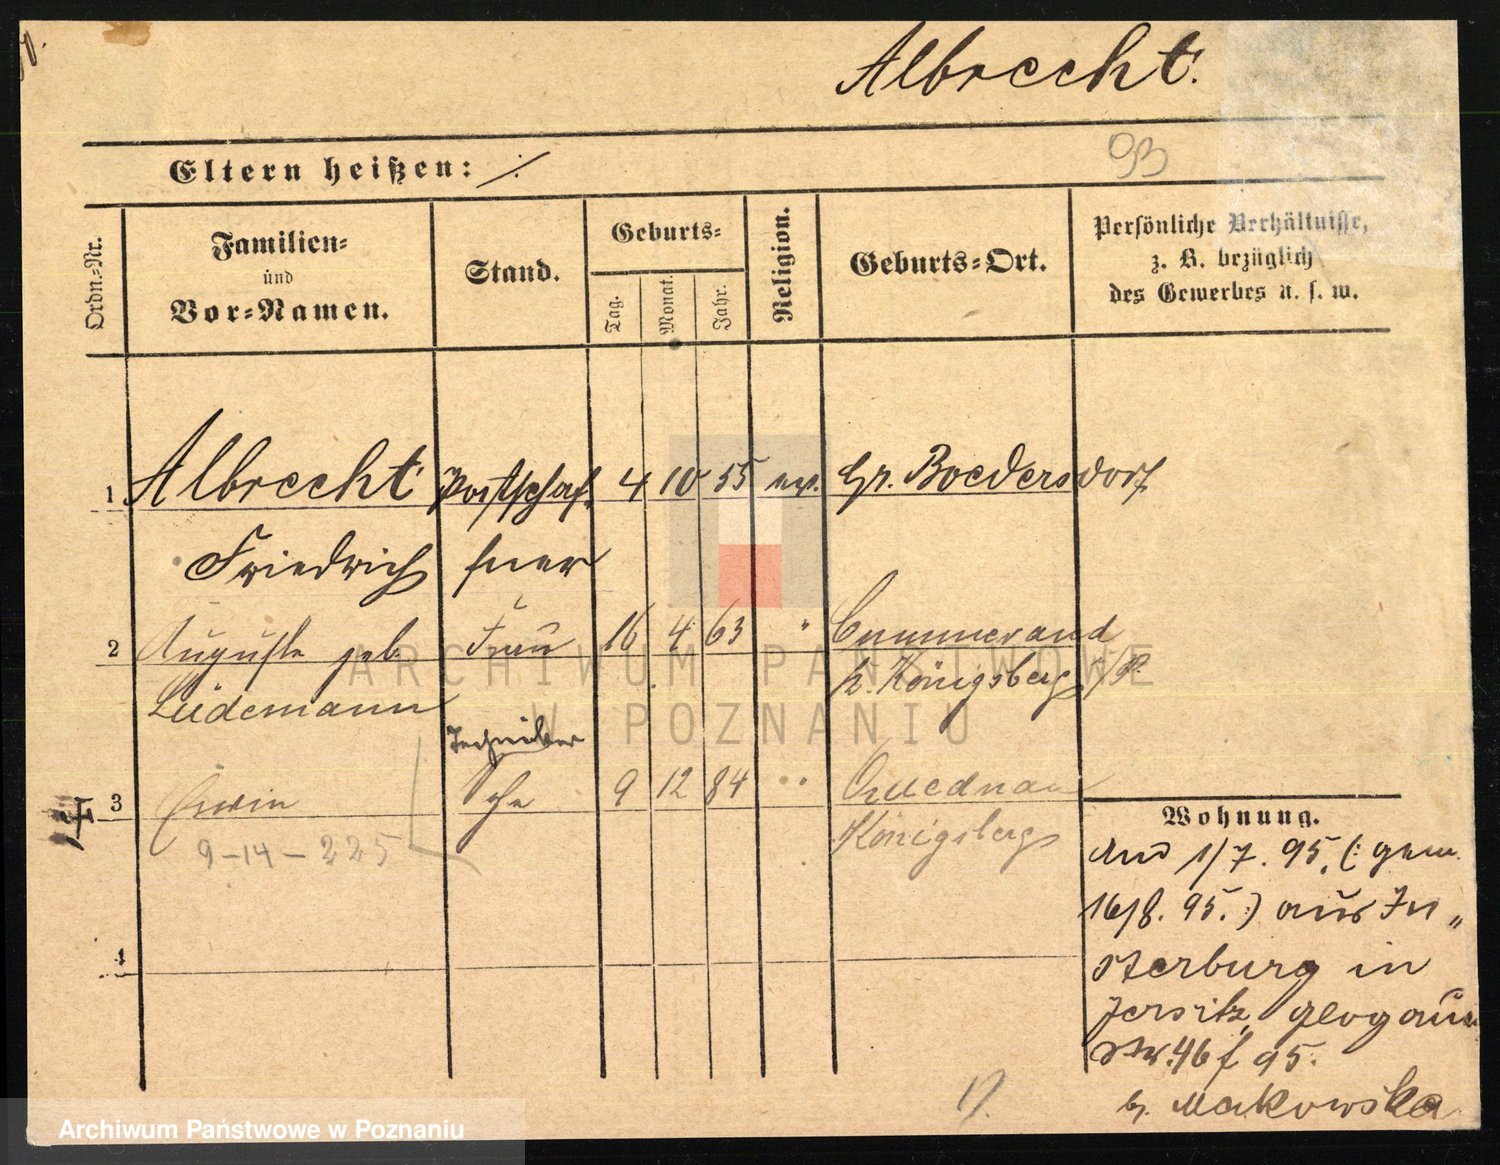 Albrecht.
93
Eltern heißen: ./.
Ordn.-Nr.
Familien-
und
Vor-Namen.
Stand.
Geburts-
Tag.
Monat.
Jahr.
Religion.
Geburts-Ort.
Persönliche Verhältnisse,
z. B. bezüglich
des Gewerbes u. s. w.
1 Albrecht Postschaf 4 10 55 ev. Gr. Boedersdorf
Friedrich fner
2 Auguste geb Frau 16 4 63 " Cummerand
Lüdemann b. Königsberg i/P.
Techniker
3 Erwin 9 12 84 " Quednau
Königsberg
9-14-225
4
Wohnung.
1/7. 95. (: gem.
16/8. 95. :) aus In„
sterburg in
Jersitz, Glogau
str. 46 f 95.
b. Makowska
ARCHIWUM PAŃSTWOWE
W POZNANIU
Archiwum Państwowe w Poznaniu